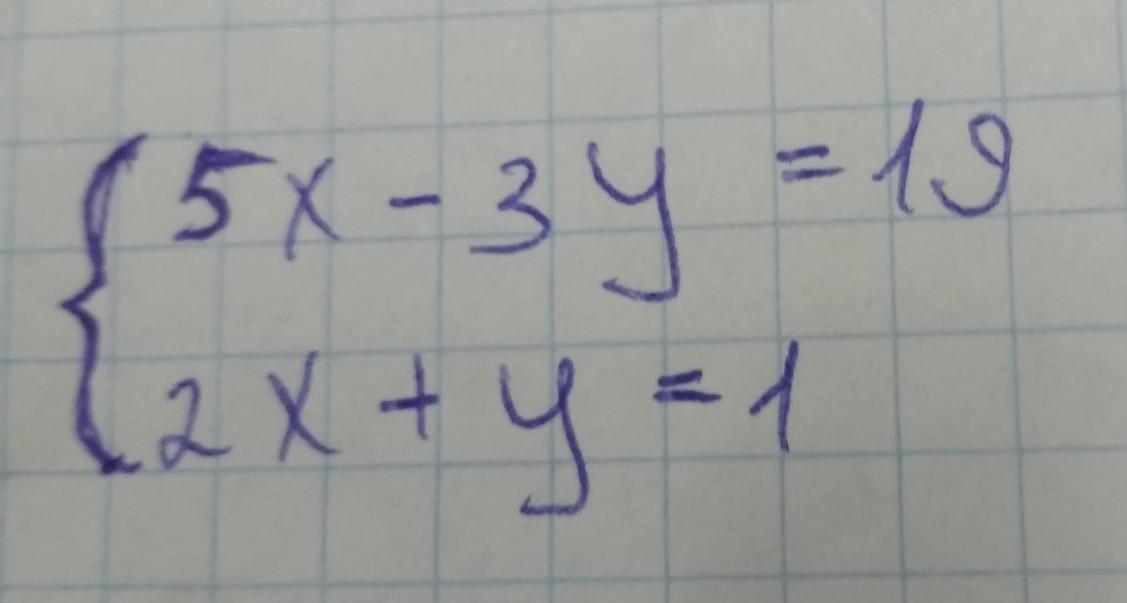 5x - 3y = 19
2x + y = 1